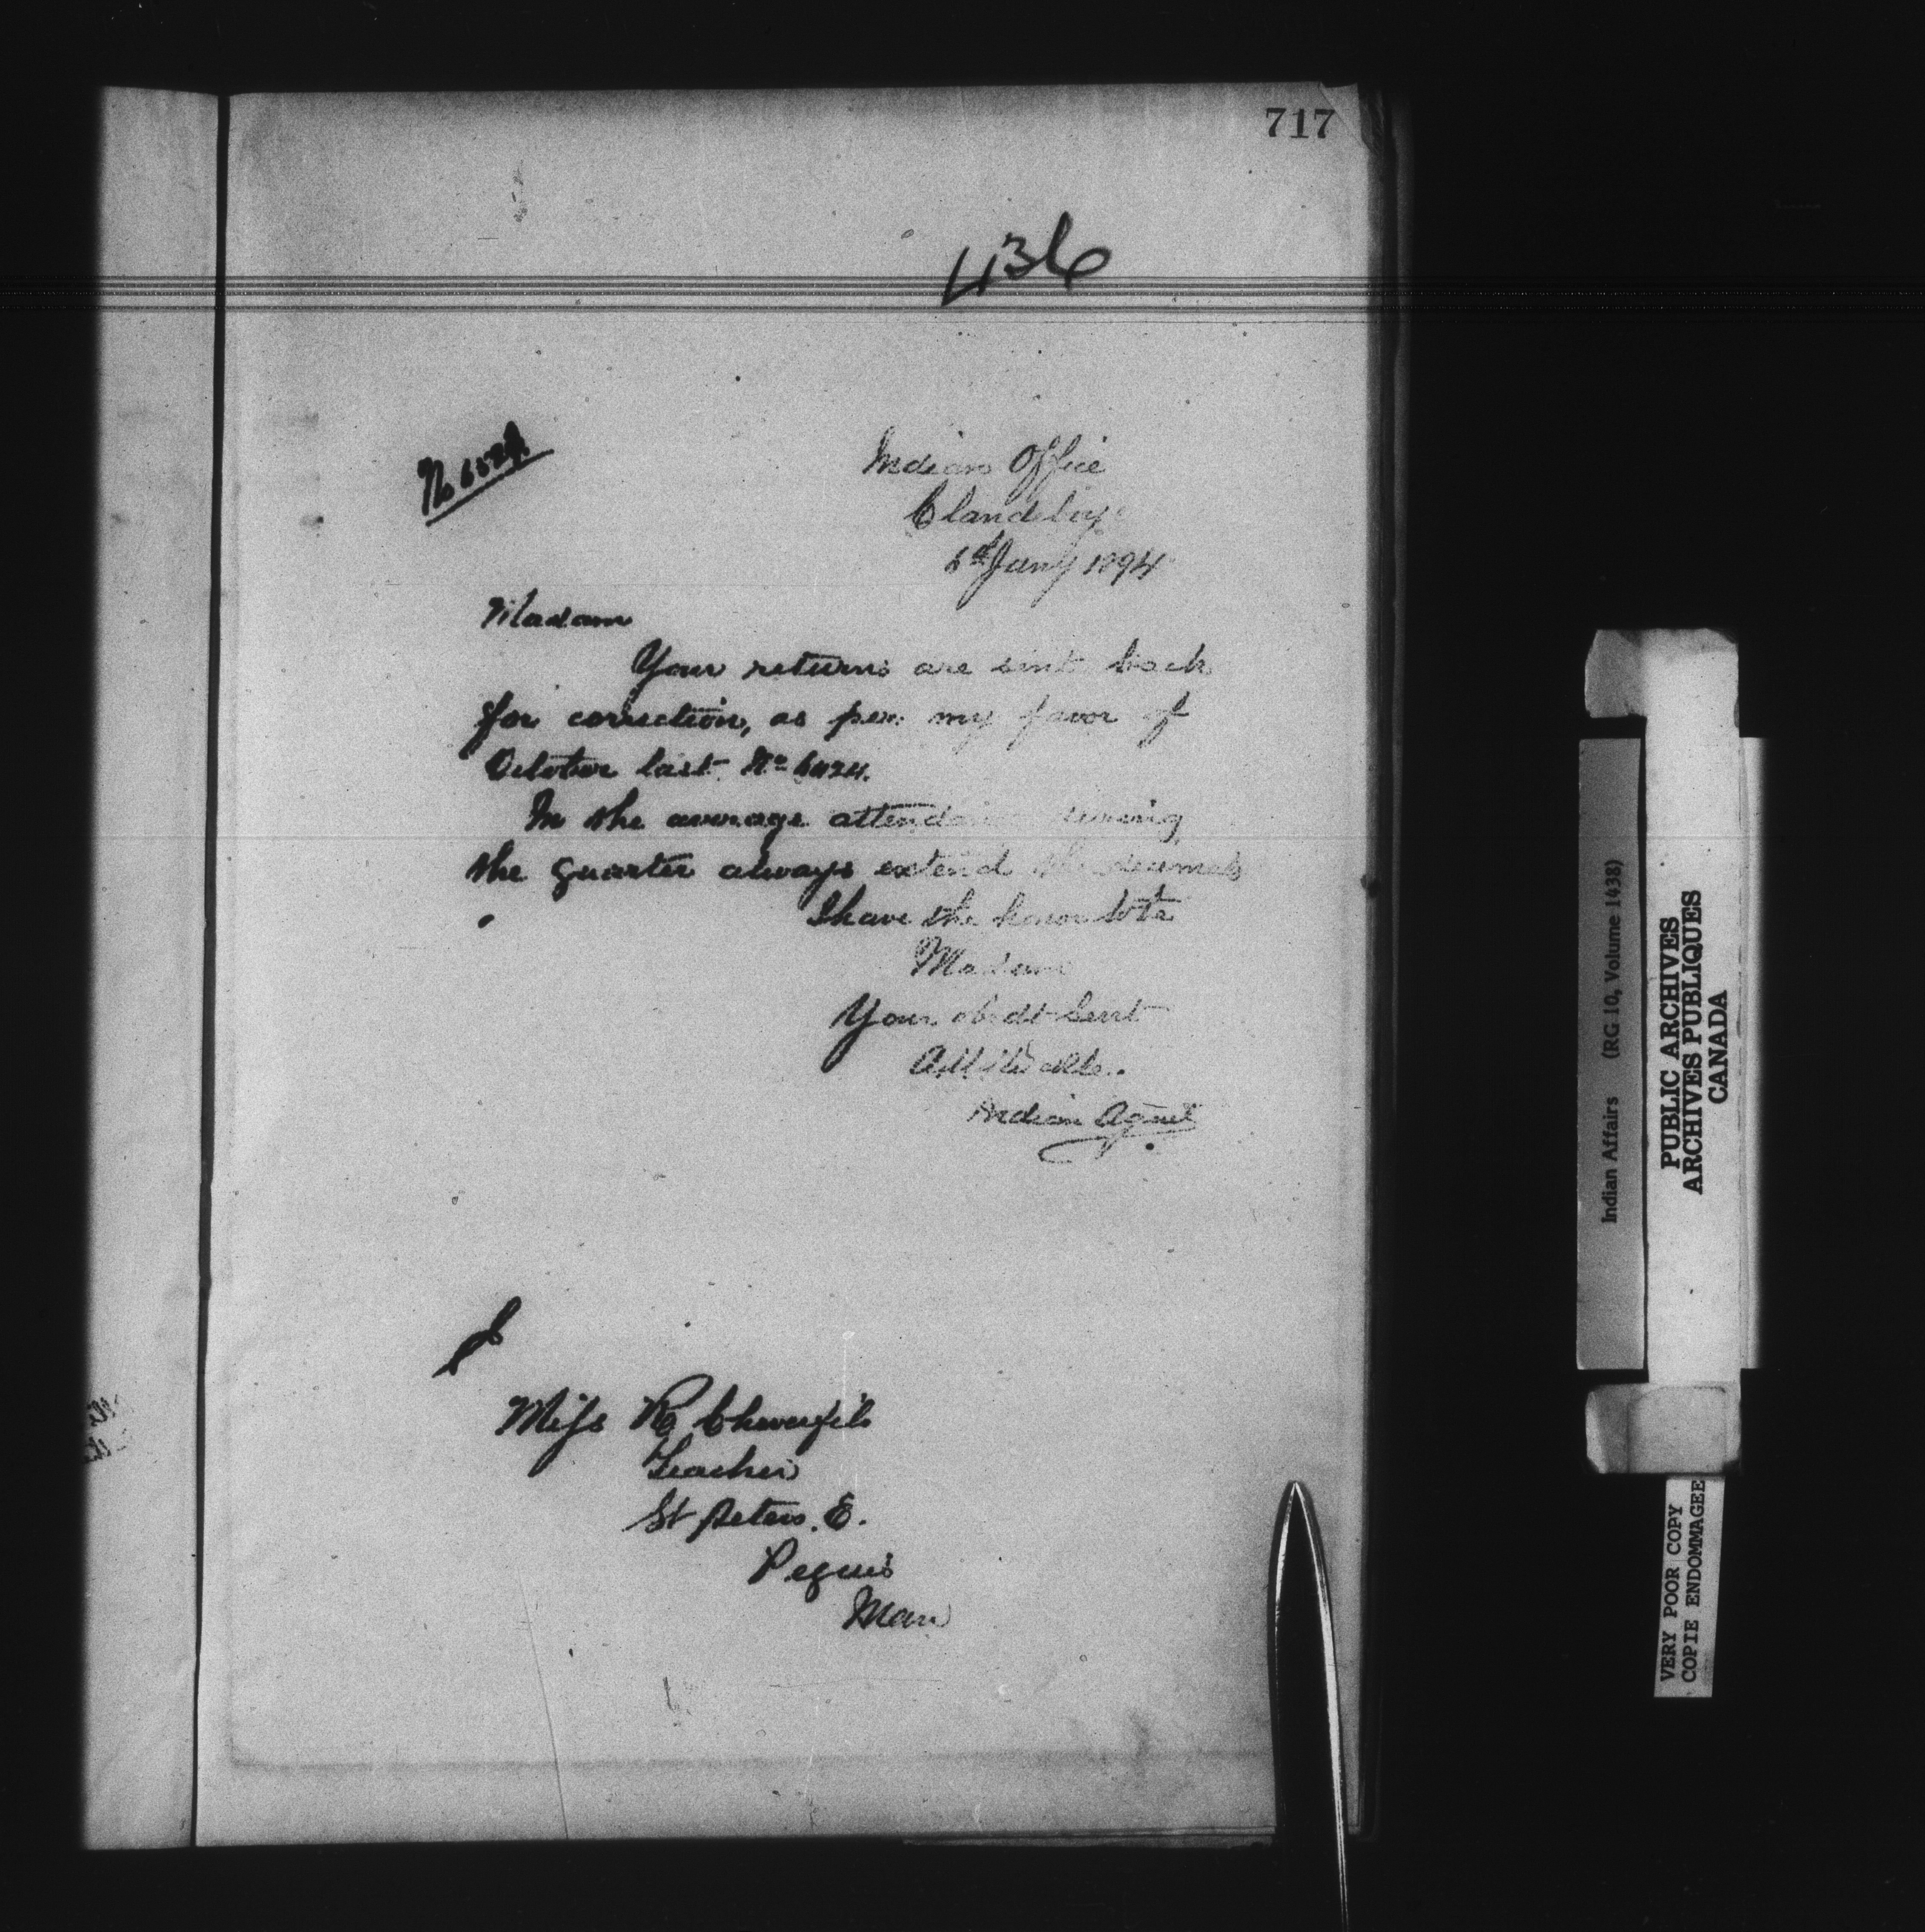 717
436
Indian Office
Clandeboye
6th Jany 1894
Madam
Your returns are sent back
for correction, as per my favor of
October last No 6424.
In the average attendance during
the quarter always extend the decimals
I have the honor to be
Madam
Your obedt Servt
Indian Agent
Miss R
Teacher
St Peters. E.
Peguis
Man
Indian Affairs (RG 10, Volume 1438)
PUBLIC ARCHIVES
ARCHIVES PUBLIQUES
CANADA
VERY POOR COPY
COPIE ENDOMMAGEE